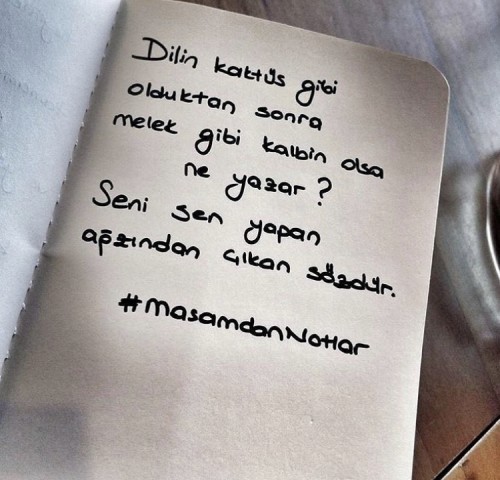 Dilin kaktüs gibi
olduktan sonra
melek gibi kalbin olsa
ne yazar?
Seni sen yapan
ağzından çıkan sözdür.
#masamdanNotlar